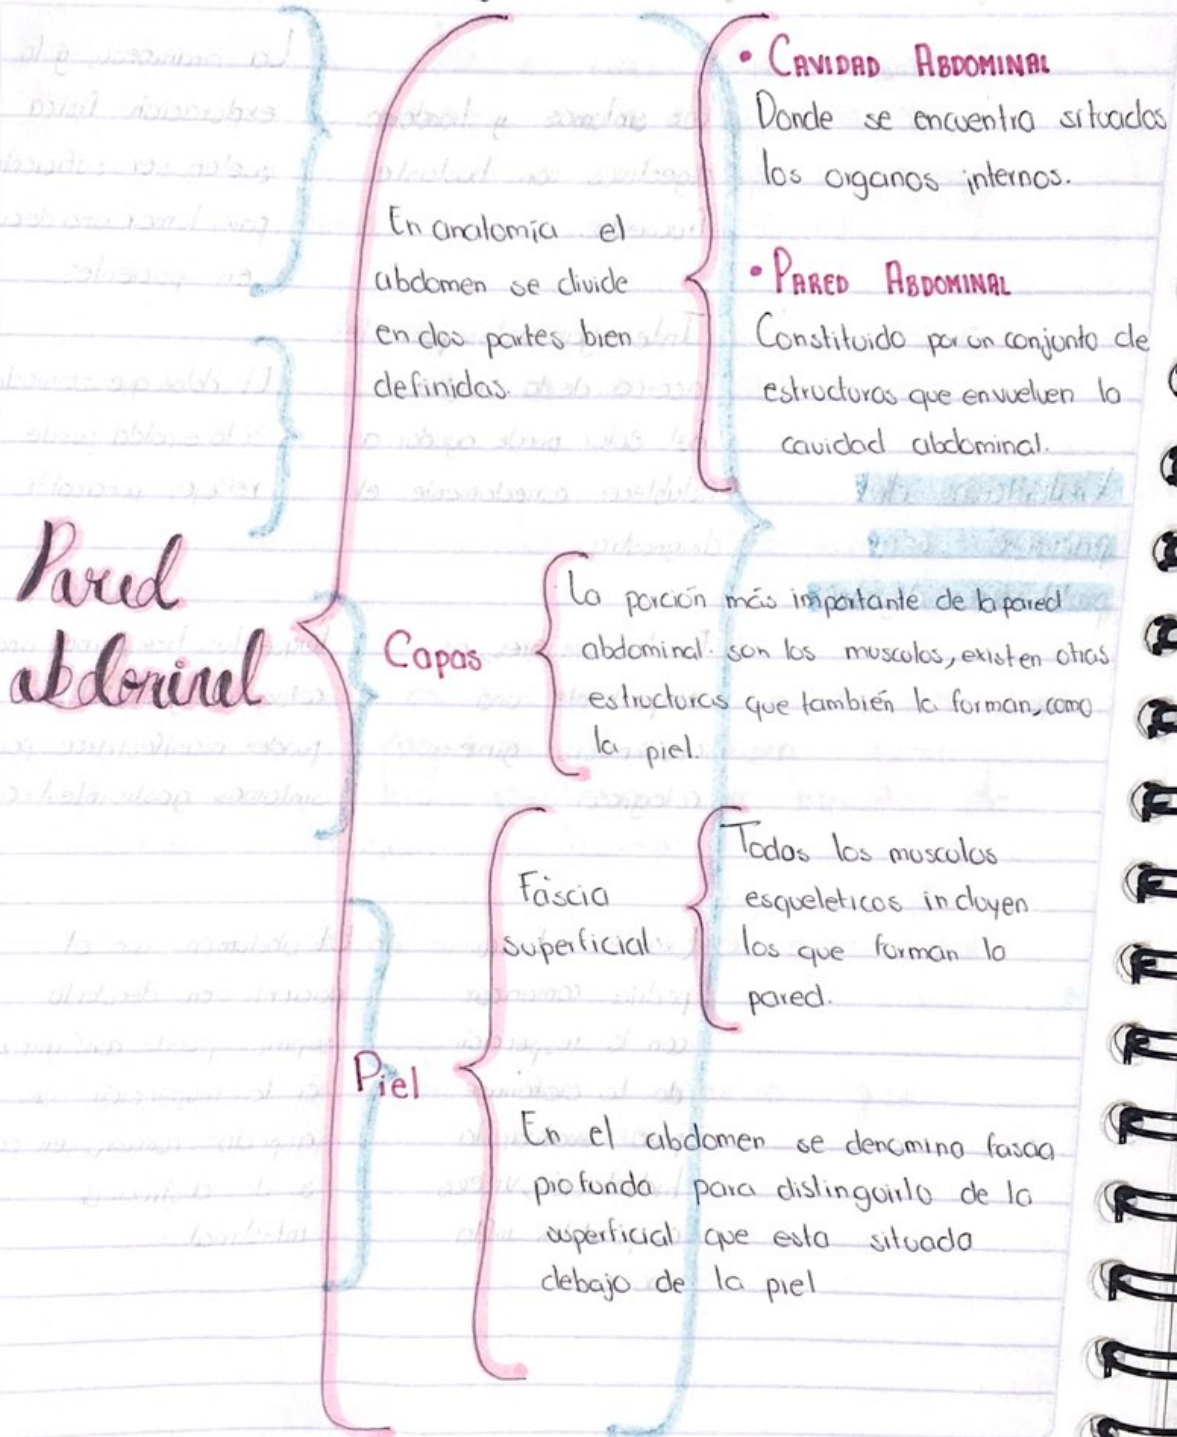 Pared
abdominal
En anatomía el
abdomen se divide
en dos partes bien
definidas.
• CAVIDAD ABDOMINAL
Donde se encuentra situados
los organos internos.
• PARED ABDOMINAL
Constituido por un conjunto de
estructuras que envuelven la
cavidad abdominal.
Capas
La porción más importante de la pared
abdominal. son los musculos, existen otras
estructuras que también la forman, como
la piel.
Piel
Fáscia
superficial
Todos los musculos
esqueleticos incluyen
los que forman la
pared.
En el abdomen se denomina
profunda para distinguirla de la
superficial que esta situada
debajo de la piel